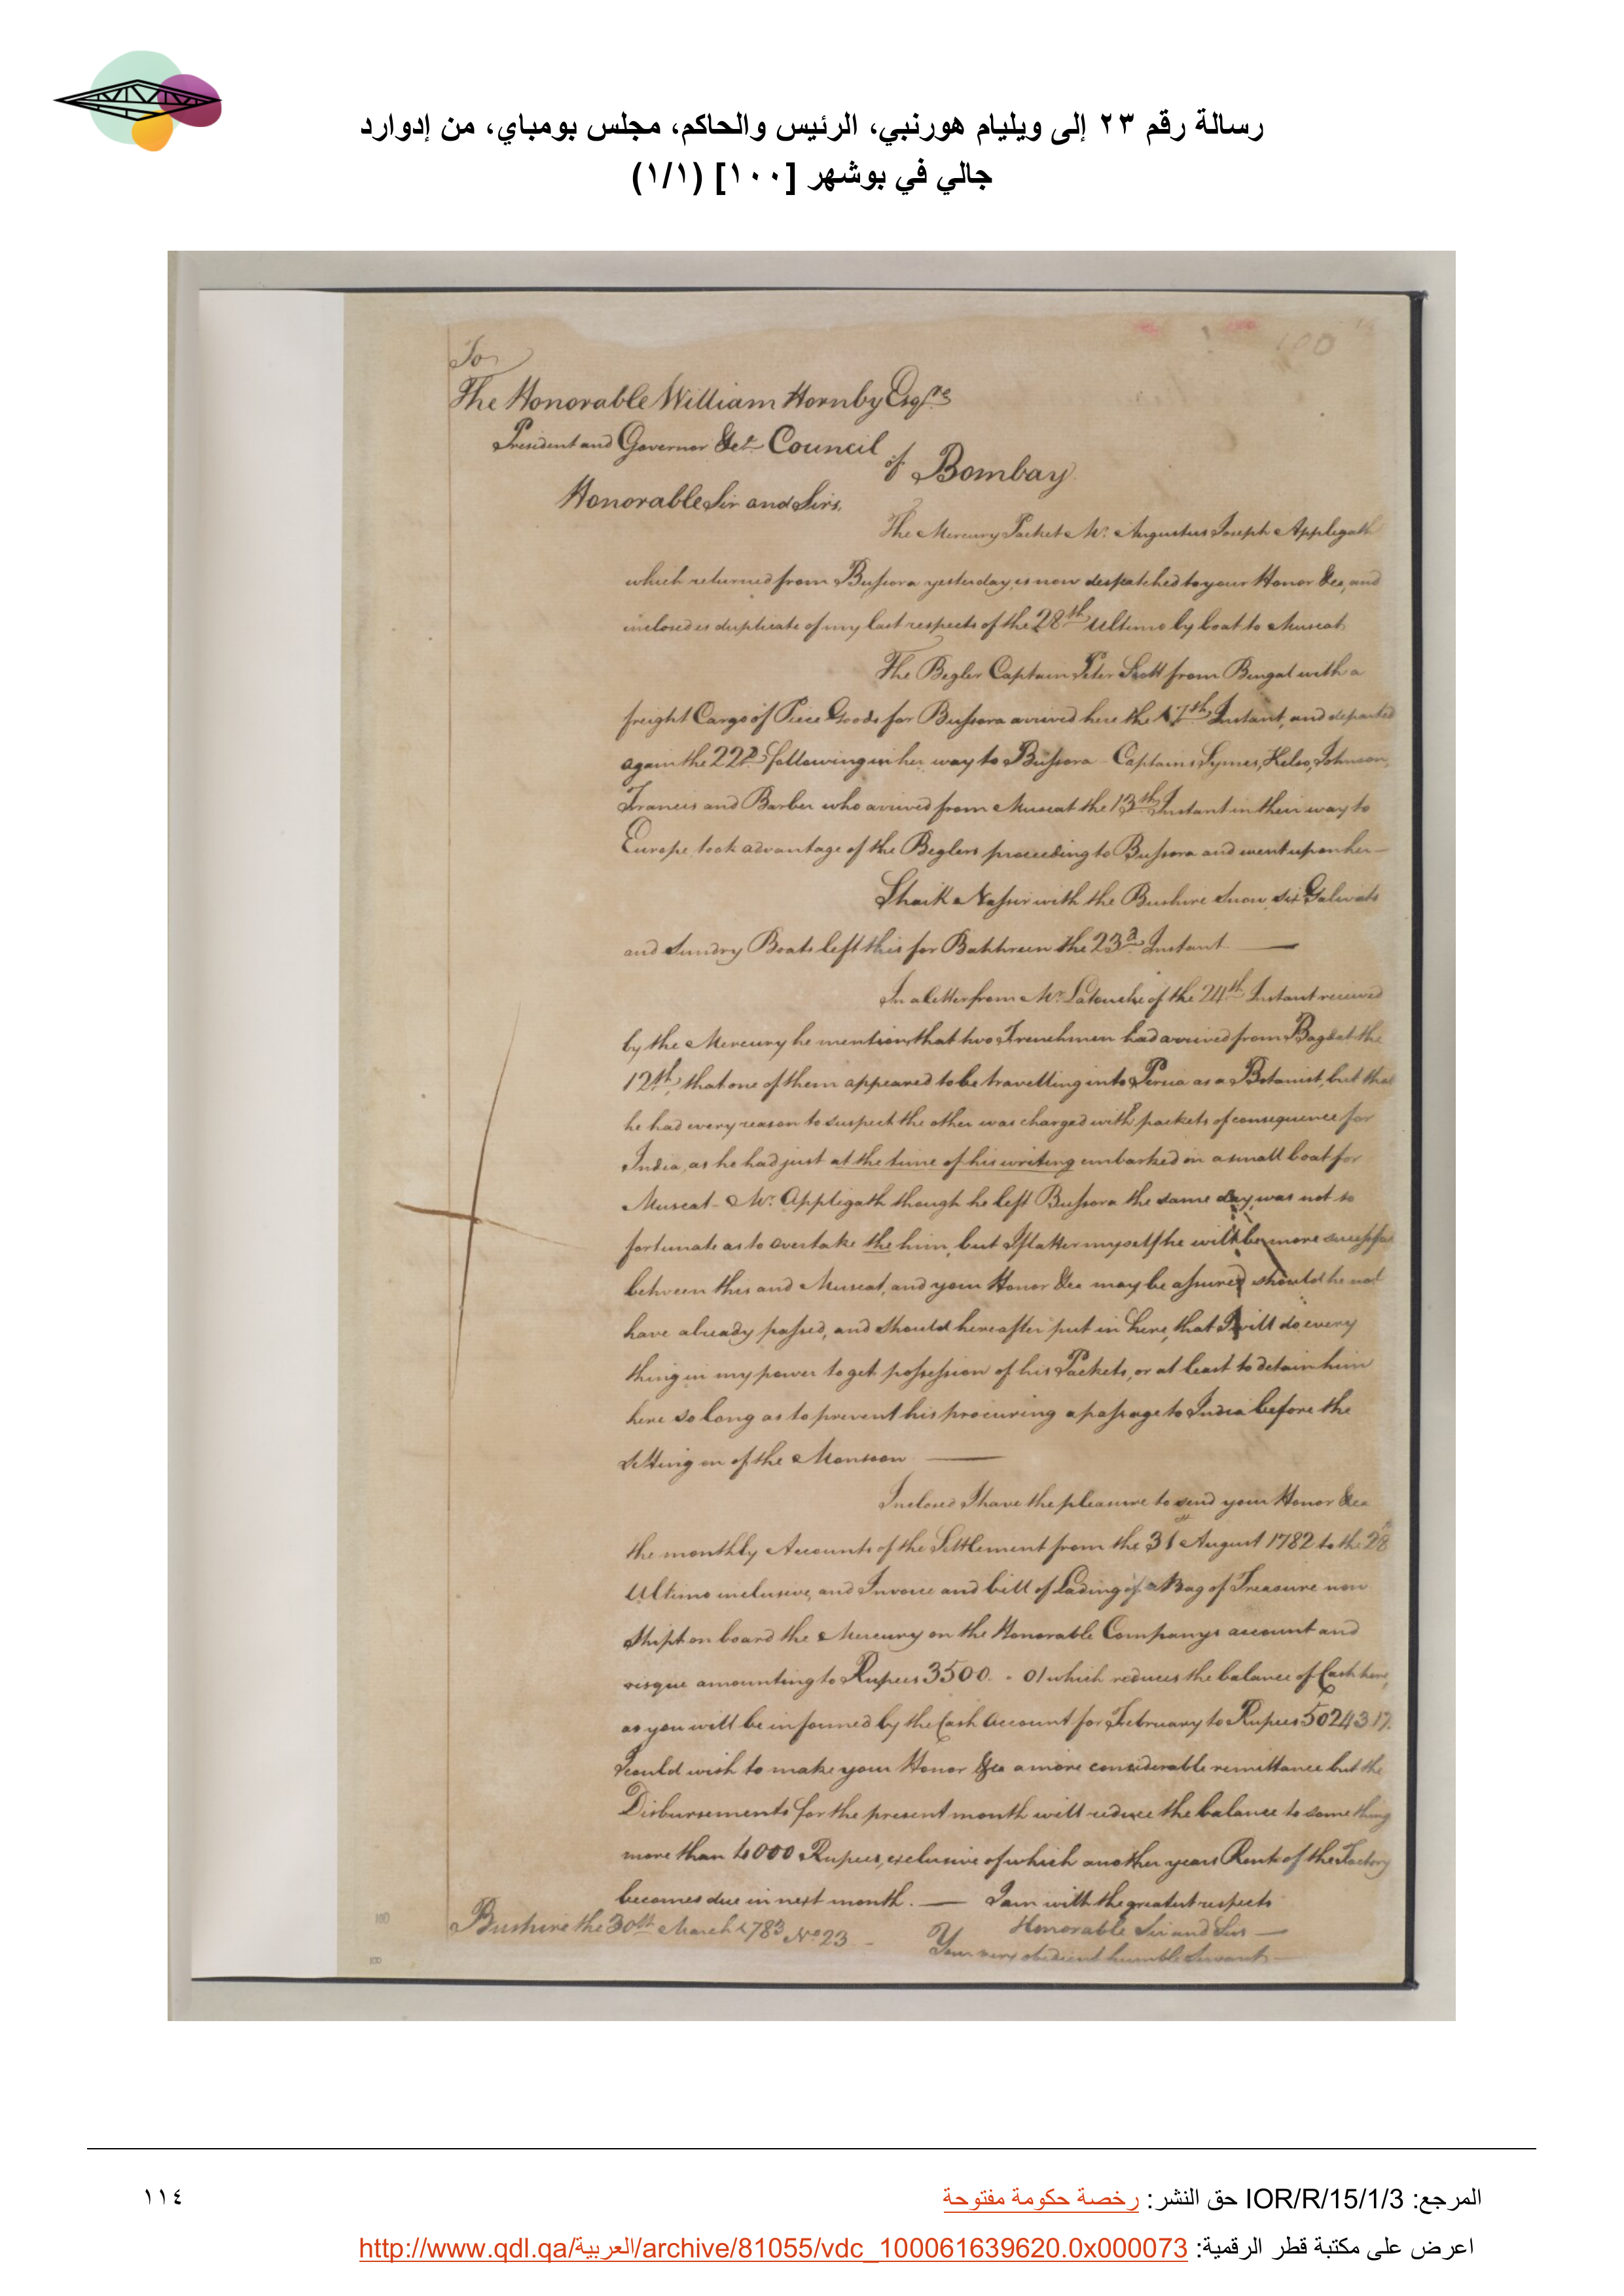 رسالة رقم ٢٣ إلى ويليام هورنبي، الرئيس والحاكم، مجلس بومباي، من إدوارد
جالي في بوشهر [١٠٠] (١/١)
100
To
The Honorable William Hornby Esqre
President and Governor &ca Council
of Bombay
Honorable Sir and Sirs,
The Mercury Packet Mr. Augustus Joseph Applegath
which returned from Bussora yesterday, is now despatched to your Honor &ca, and
inclosed is duplicate of my last respects of the 28th Ultimo by boat to Muscat
The Begler Captain Peter Scott from Bengal with a
freight Cargo of Piece Goods for Bussora arrived here the 17th Instant, and departed
again the 22d following in her way to Bussora - Captains Symes, Kelso, Johnson,
Francis and Barber who arrived from Muscat the 13th Instant in their way to
Europe took advantage of the Beglers proceeding to Bussora and went upon her —
Shaik Nassir with the Bushire Snow, six Galwats
and Sundry Boats left this for Bahhreen the 23d Instant —
In a letter from Mr. Latouche of the 24th Instant received
by the Mercury he mentions that two Frenchmen had arrived from Bagdat the
12th, that one of them appeared to be travelling into Persia as a Botanist, but that
he had every reason to suspect the other was charged with packets of consequence for
India, as he had just at the time of his writing embarked on a small boat for
Muscat - Mr. Applegath though he left Bussora the same day, was not so
fortunate as to overtake the him, but I flatter myself he will be more successful
between this and Muscat, and your Honor &ca may be assured should he not
have already passed, and should hereafter put in here, that I will do every
thing in my power to get possession of his Packets, or at least to detain him
here so long as to prevent his procuring a passage to India before the
setting on of the Monsoon —
Inclosed I have the pleasure to send your Honor &ca
the monthly Accounts of the Settlement from the 31st August 1782 to the 28
Ultimo inclusive, and Invoice and bill of Lading of a Bag of Treasure now
Shipt on board the Mercury on the Honorable Companys account and
risque amounting to Rupees 3500. - 01 which reduces the balance of Cash here,
as you will be informed by the Cash Account for February to Rupees 5024 3 17.
I could wish to make your Honor &ca a more considerable remittance but the
Disbursements for the present month will reduce the balance to something
more than 4000 Rupees, exclusive of which another years Rent of the Factory
becomes due in next month. — I am with the greatest respects
Honorable Sir and Sirs —
Bushire the 30th March 1783 No 23 -
Your very obedient humble Servant
١١٤
المرجع: IOR/R/15/1/3 حق النشر: رخصة حكومة مفتوحة
اعرض على مكتبة قطر الرقمية: http://www.qdl.qa/العربية/archive/81055/vdc_100061639620.0x000073